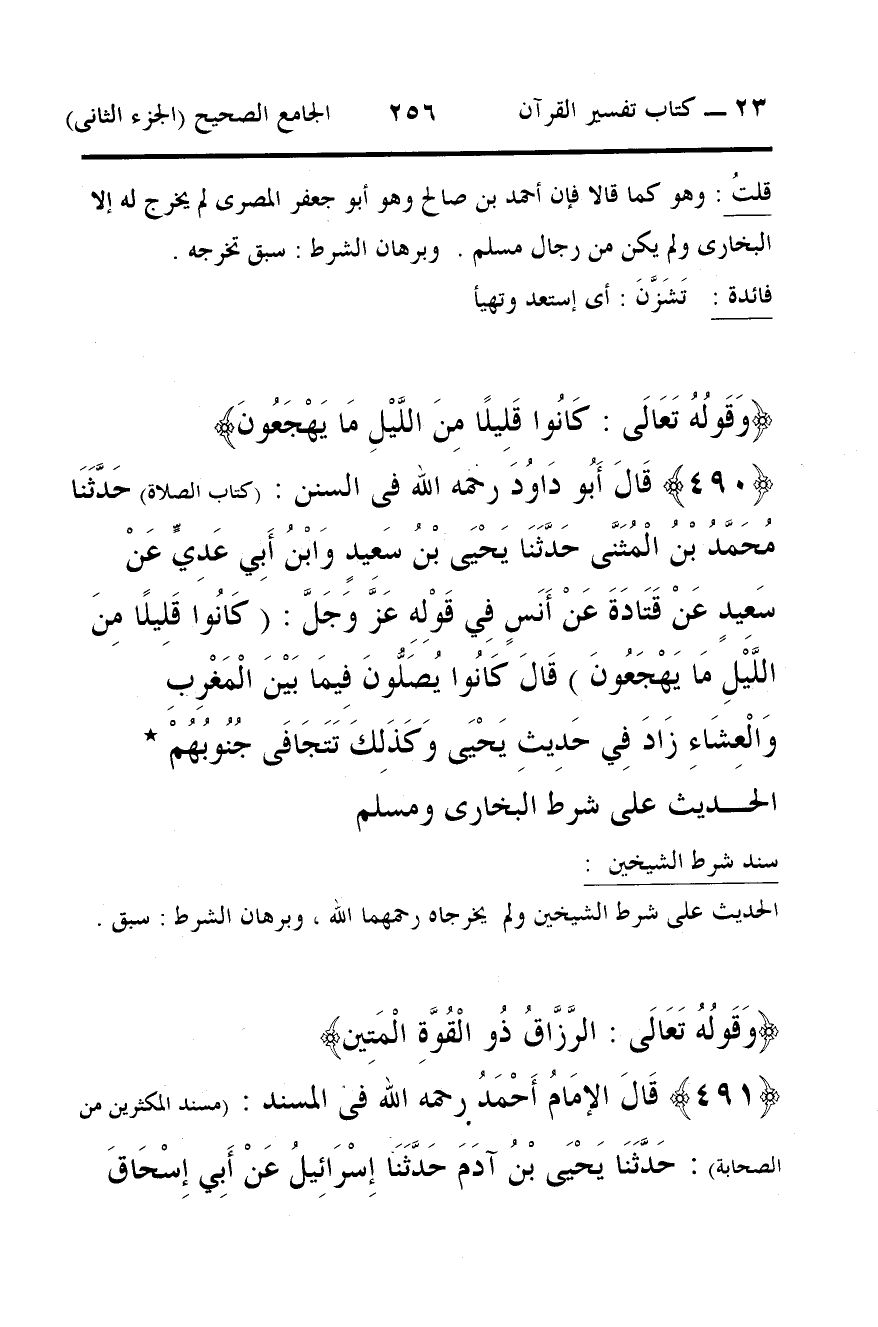 ٢٣ ــ كتاب تفسير القرآن ٢٥٦ الجامع الصحيح (الجزء الثانى)
قلتُ : وهو كما قالا فإن أحمد بن صالح وهو أبو جعفر المصرى لم يخرج له إلا
البخارى ولم يكن من رجال مسلم . وبرهان الشرط : سبق تخرجه .
فائدة : تَشَزَّنَ : أى إستعد وتهيأ
﴿وَقَولُهُ تَعَالَى : كَانُوا قَلِيلًا مِنَ اللَّيْلِ مَا يَهْجَعُونَ﴾
﴿٤٩٠﴾ قَالَ أَبُو دَاوُدَ رحمه الله فى السنن : (كتاب الصلاة) حَدَّثَنَا
مُحَمَّدُ بْنُ الْمُثَنَّى حَدَّثَنَا يَحْيَى بْنُ سَعِيدٍ وَابْنُ أَبِي عَدِيٍّ عَنْ
سَعِيدٍ عَنْ قَتَادَةَ عَنْ أَنَسٍ فِي قَوْلِهِ عَزَّ وَجَلَّ : ( كَانُوا قَلِيلًا مِنَ
اللَّيْلِ مَا يَهْجَعُونَ ) قَالَ كَانُوا يُصَلُّونَ فِيمَا بَيْنَ الْمَغْرِبِ
وَالْعِشَاءِ زَادَ فِي حَدِيثِ يَحْيَى وَكَذَلِكَ تَتَجَافَى جُنُوبُهُمْ *
الحـــديث على شرط البخارى ومسلم
سند شرط الشيخين :
الحديث على شرط الشيخين ولم يخرجاه رحمهما الله ، وبرهان الشرط : سبق .
﴿وَقَولُهُ تَعَالَى : الرَّزَّاقُ ذُو الْقُوَّةِ الْمَتِين﴾
﴿٤٩١﴾ قَالَ الإِمَامُ أَحْمَدُ رحمه الله فى المسند : (مسند المكثرين من
الصحابة) : حَدَّثَنَا يَحْيَى بْنُ آدَمَ حَدَّثَنَا إِسْرَائِيلُ عَنْ أَبِي إِسْحَاقَ